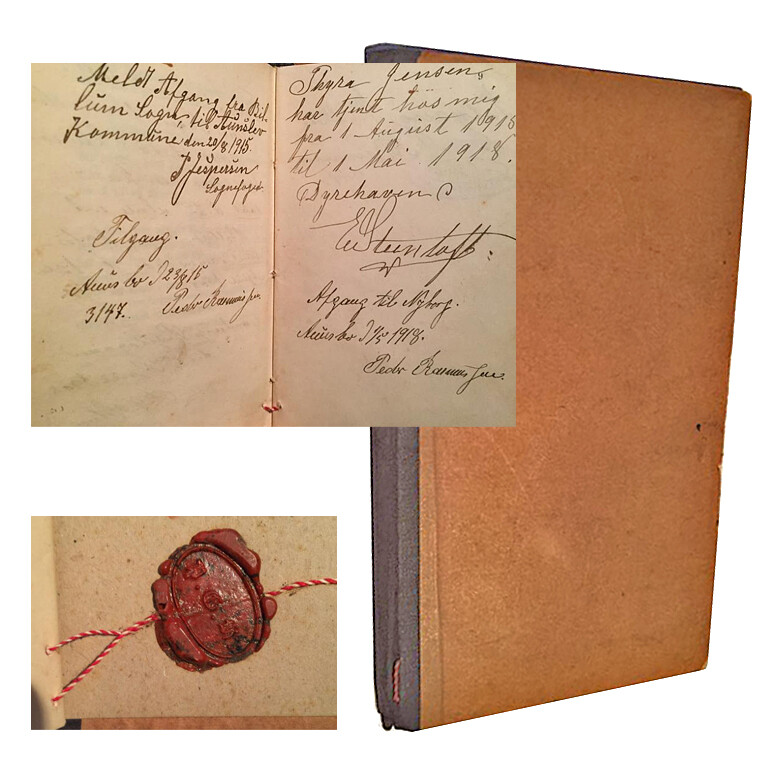 Meldt Afgang fra Bil
lum Sogn, til Aunslev
Kommune den 20/8 1915.
J Jespersen
Sognefoged.
Tilgang.
Aunsbo d 23/8 15
3147. Pedr Rasmussen.
Thyra Jensen,
har tjent hos mig
fra 1 August 1915
til 1 Mai 1918.
Dyrehaven
Afgang til Nyborg.
Aunsbo d 1/5 1918.
Pedr Rasmussen.